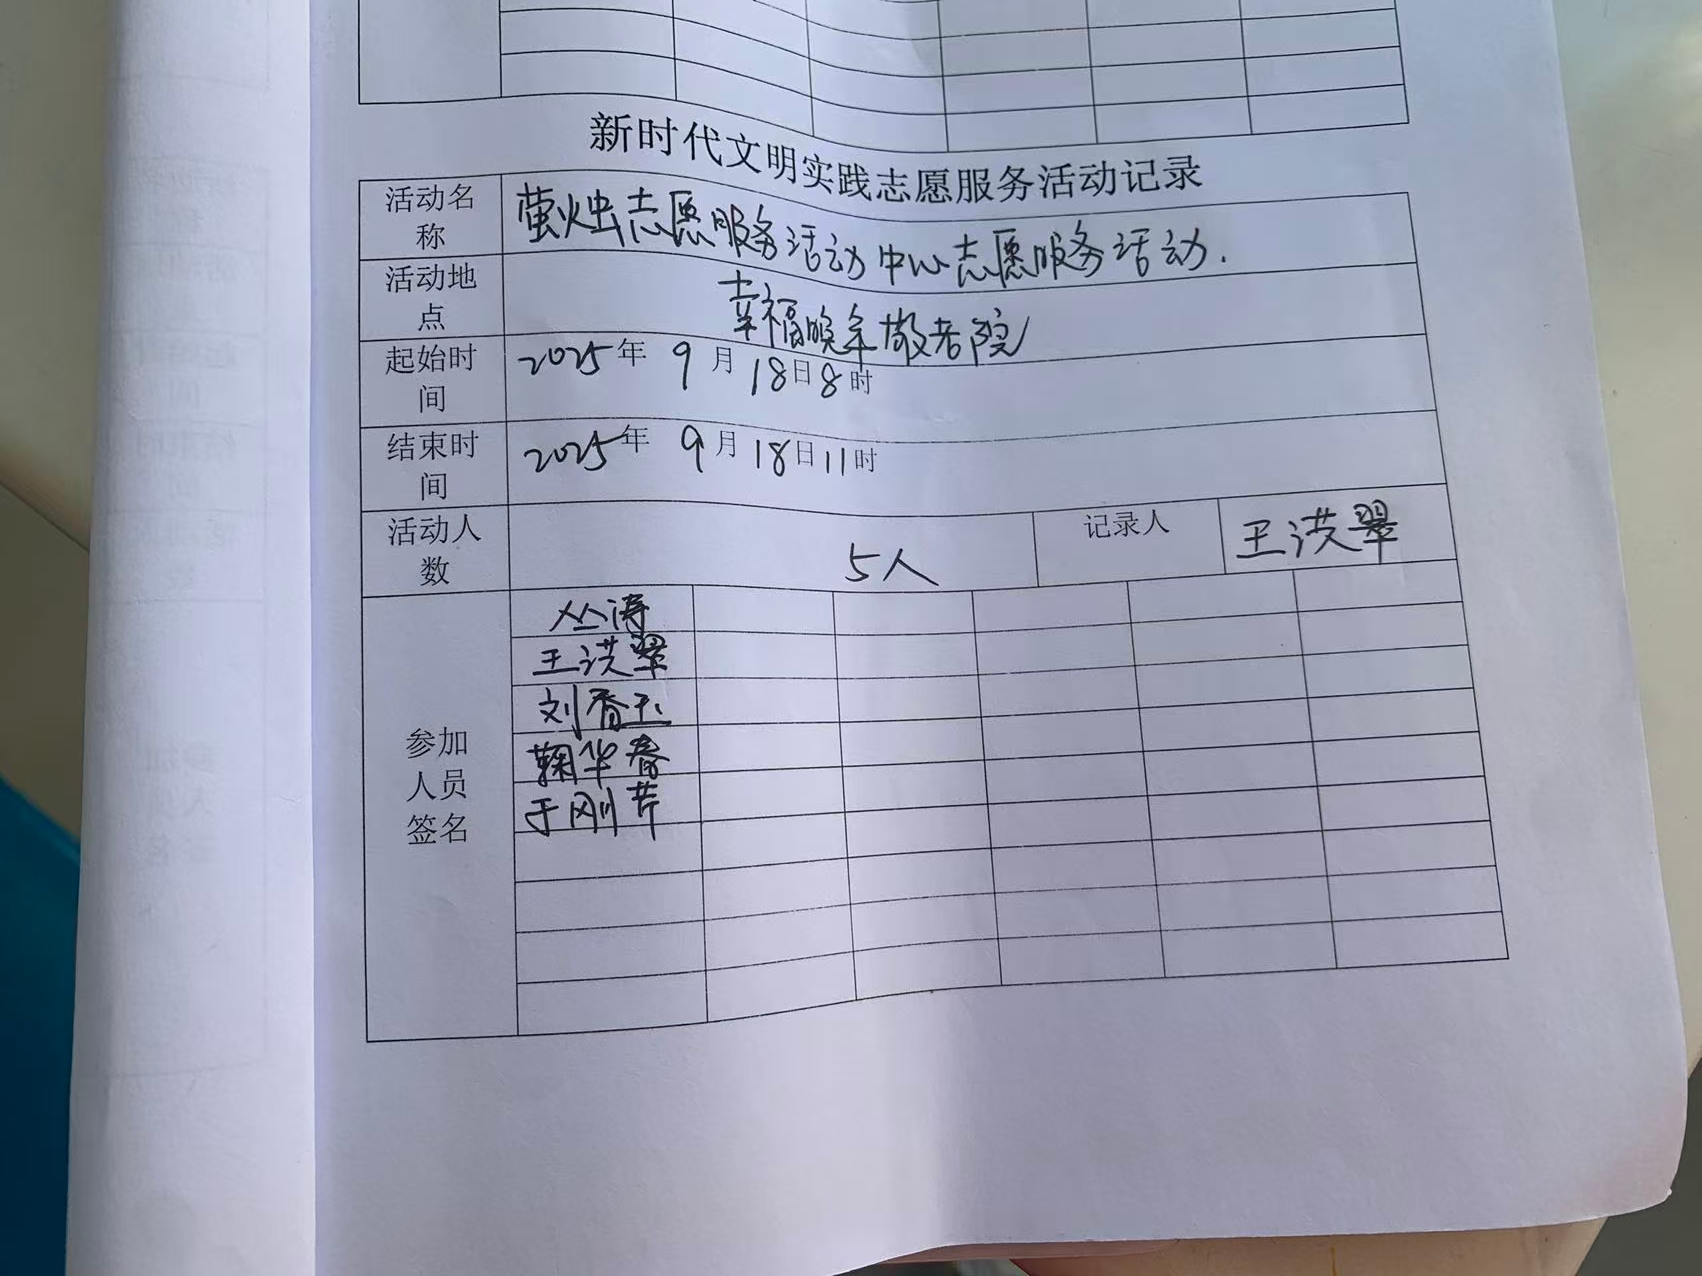 新时代文明实践志愿服务活动记录
活动名称 萤烛志愿服务活动中心志愿服务活动.
活动地点 幸福晚年敬老院
起始时间 2025年 9月 18日8时
结束时间 2025年 9月 18日11时
活动人数 5人 记录人 王洪翠
参加人员签名
丛涛
王洪翠
刘香玉
鞠华春
于刚芹